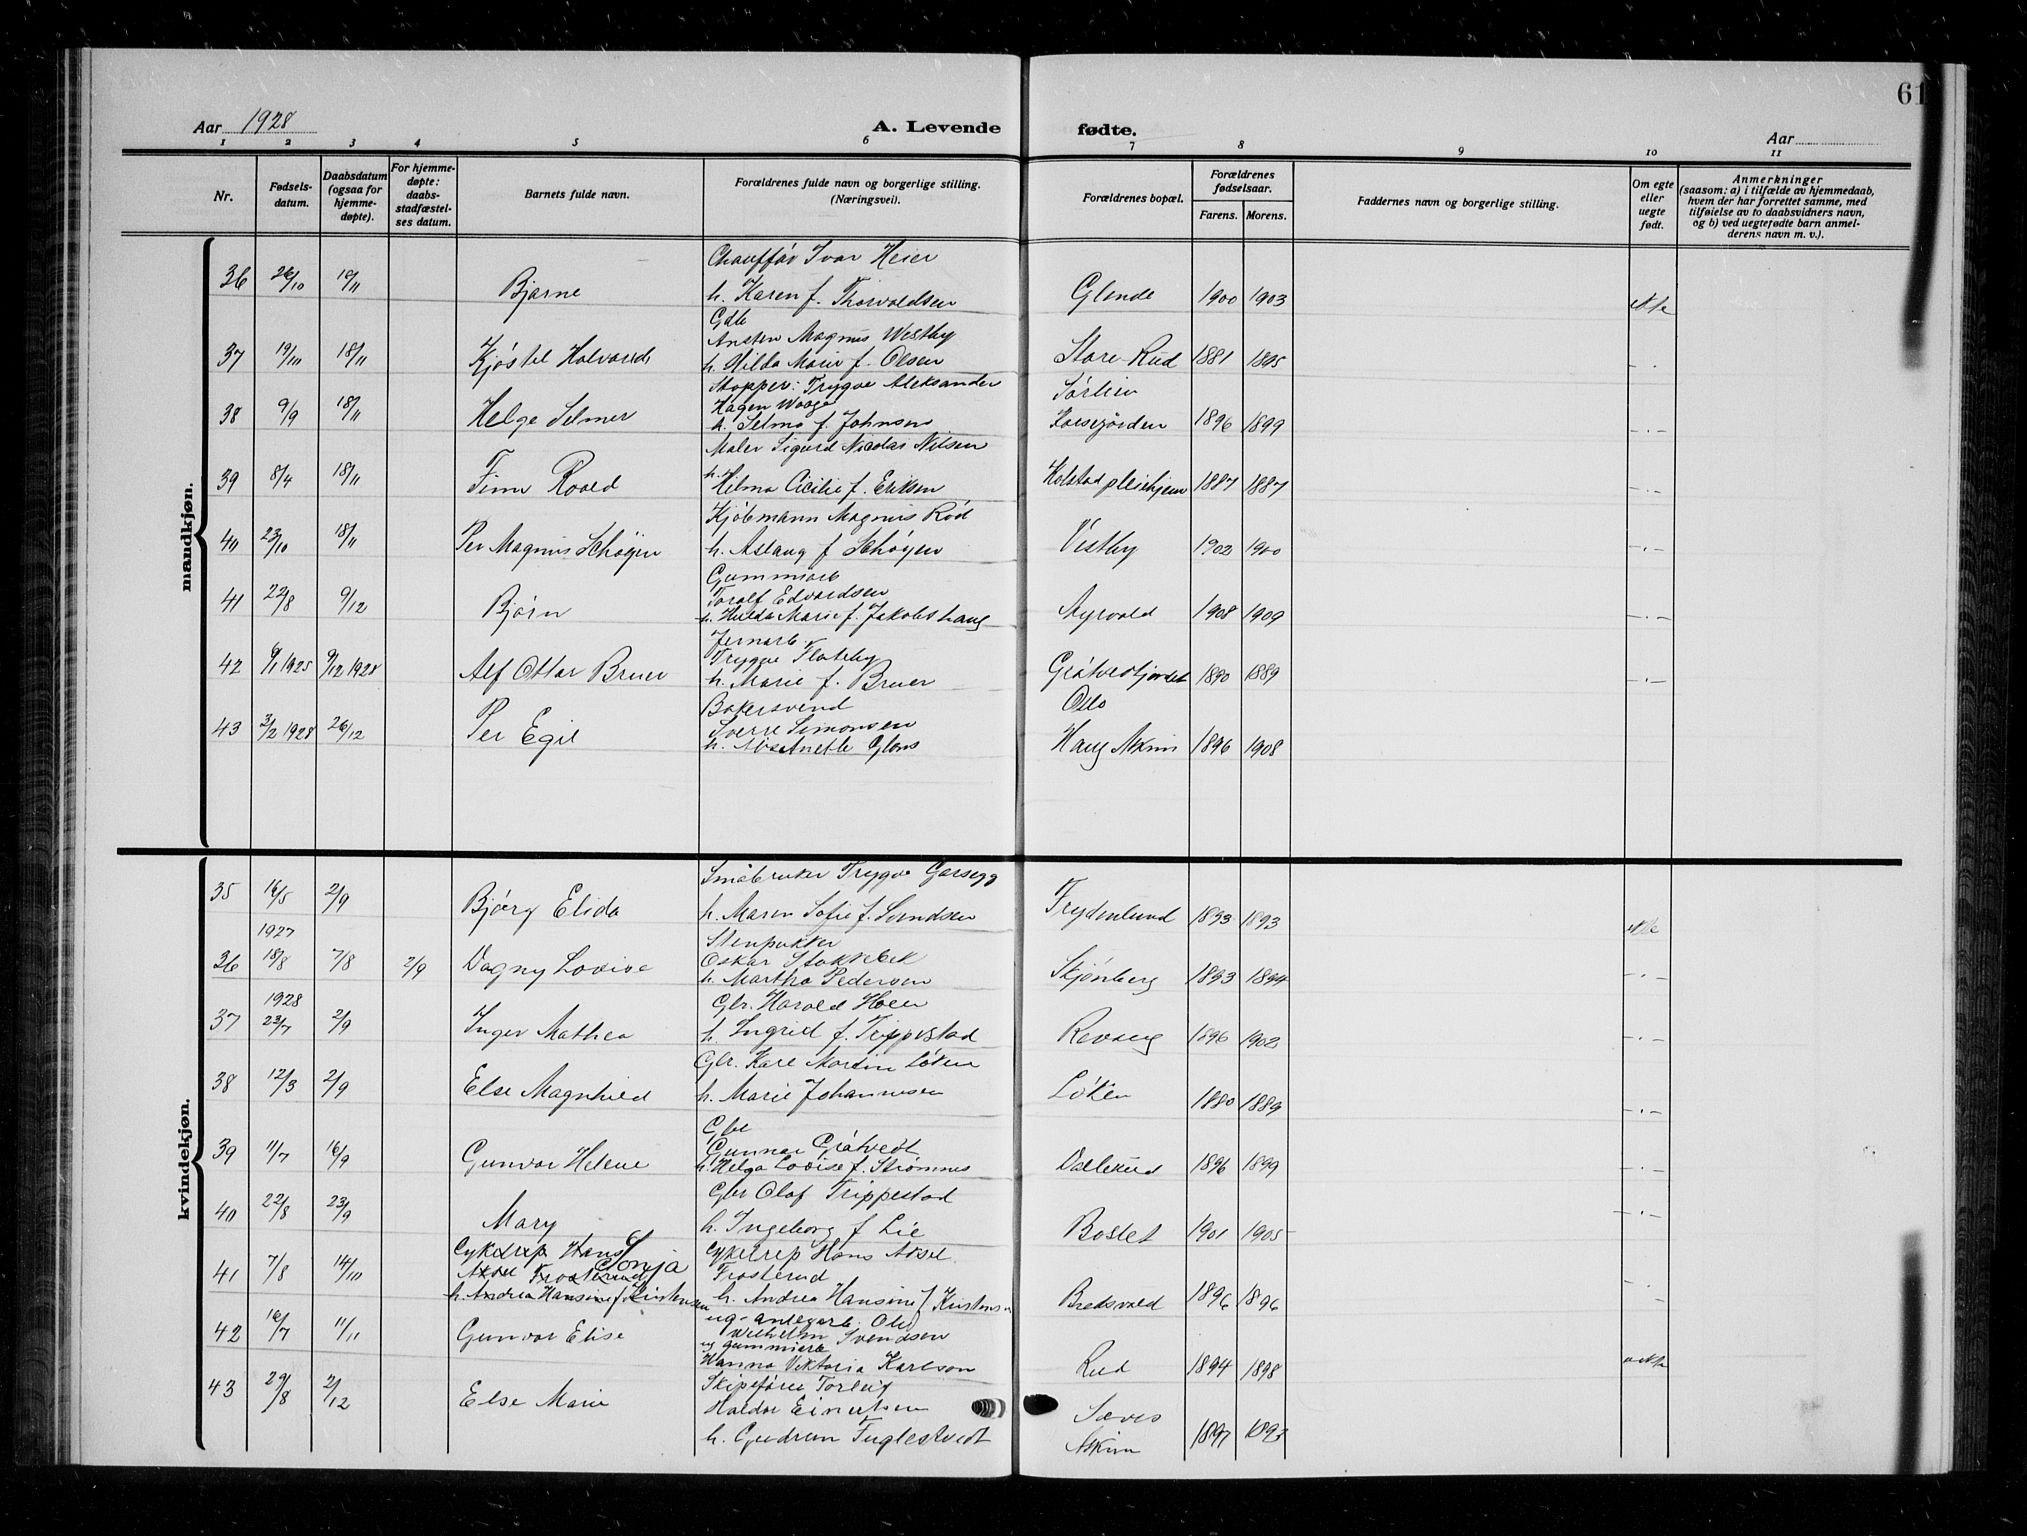 61
Aar 1928
A. Levende fødte.
Aar
1 2 3 4 5 6 7 8 9 10 11
Nr.
Fødsels-
datum.
Daabsdatum
(ogsaa for
hjemme-
døpte).
For hjemme-
døpte:
daabs-
stadfæstel-
ses datum.
Barnets fulde navn.
Forældrenes fulde navn og borgerlige stilling.
(Næringsvei).
Forældrenes bopæl.
Forældrenes
fødselsaar.
Farens. Morens.
Faddernes navn og borgerlige stilling.
Om egte
eller
uegte
født.
Anmerkninger
(saasom: a) i tilfælde av hjemmedaab,
hvem der har forrettet samme, med
tilføielse av to daabsvidners navn,
og b) ved uegtefødte barn anmel-
derens navn m. v.).
mandkjøn.
Chauffør Ivar Heier
36 26/10 18/11 Bjarne h. Karen f. Thorvaldsen Glende 1900 1903 ekte
Gdb
Ansten Magnus Westby
37 19/10 18/11 Kjøstel Halvard h. Hilda Marie f. Olsen Store Rud 1881 1895 - . -
Stopper: Trygve Aleksander Sørlien
Hagen Waage
38 9/9 18/11 Helge Selmer h. Selma f. Johnsen Korsegården 1896 1899 - . -
Maler Sigurd Nicolai Nilsen
39 8/4 18/11 Finn Roald h. Hilma Cicilie f. Eriksen Holstad pleiehjem 1887 1887 - . -
Kjøbmann Magnus Rød
40 23/10 18/11 Per Magnus Schøyen h. Aslaug f. Schøyen Vestby 1902 1900 - . -
Gummiarb
Toralf Edvardsen
41 22/8 9/12 Bjørn h. Hulda Marie f. Jakobshaug Myrvold 1908 1909 - . -
Jernarb.
Trygve Flateby
42 9/1 1925 9/12 1928 Alf Ottar Bruer h. Marie f. Bruer Gråtvedtjordet 1890 1889 - . -
Bakersvend Oslo
Sverre Simonsen
43 3/2 1928 26/12 Per Egil h. Anette Haug Askim 1896 1908
kvindekjøn.
Småbruker Trygve
35 16/5 2/9 Bjørg Elida h. Maren Sofie f. Svendsen Frydenlund 1893 1893 ekte
1927
Stenpukker
Oskar Stokkebek
36 18/8 7/8 2/9 Dagny Lovise h. Martha Pedersen Skjønberg 1893 1894 - . -
1928
Gbr. Harald Hoen
37 23/7 2/9 Inger Mathea h. Ingrid f. Trippestad Revaug 1896 1902 - . -
Gbr. Karl Martin Løken
38 12/3 2/9 Else Magnhild h. Marie Johannesen Løken 1880 1889 - . -
Gbr
Gunnar Gråtvedt
39 11/7 16/9 Gunvor Helene h. Helga Lovise f. Strømnes Dalerud 1896 1899 - . -
Gbr Olaf Trippestad
40 22/8 23/9 Mary h. Ingeborg f Lie Bostet 1901 1905 - . -
Cykelrep Hans Cykelrep Hans Aksel
Aksel Frosterud Sonja Frosterud
41 7/8 14/10 h. Andrea Hansine f Kristensen h. Andrea Hansine f Kristensen Bredsvold 1896 1896 - . -
ug. anlegarb. Ole
Wilhelm Svendsen
ug gummiarb
42 16/7 11/11 Gunvor Elise Hanna Viktoria Karlson Rud 1894 1898 uekte
Skipsfører Torleif
Haldor Einertsen
43 29/8 2/12 Else Marie h. Gudrun Fuglestvedt Askim 1897 1893